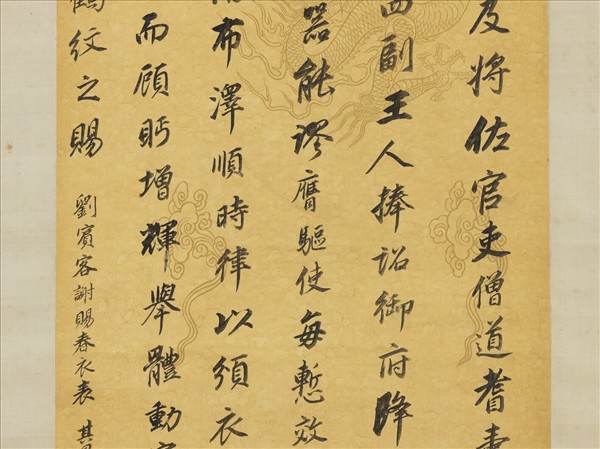 及將佐官吏僧道耆壽
四副王人捧詔御府降
器能謬膺驅使每慙效
布澤順時律以頒衣
而顧眄增輝舉體動
鶴紋之賜
劉賓客謝賜春衣表 其昌